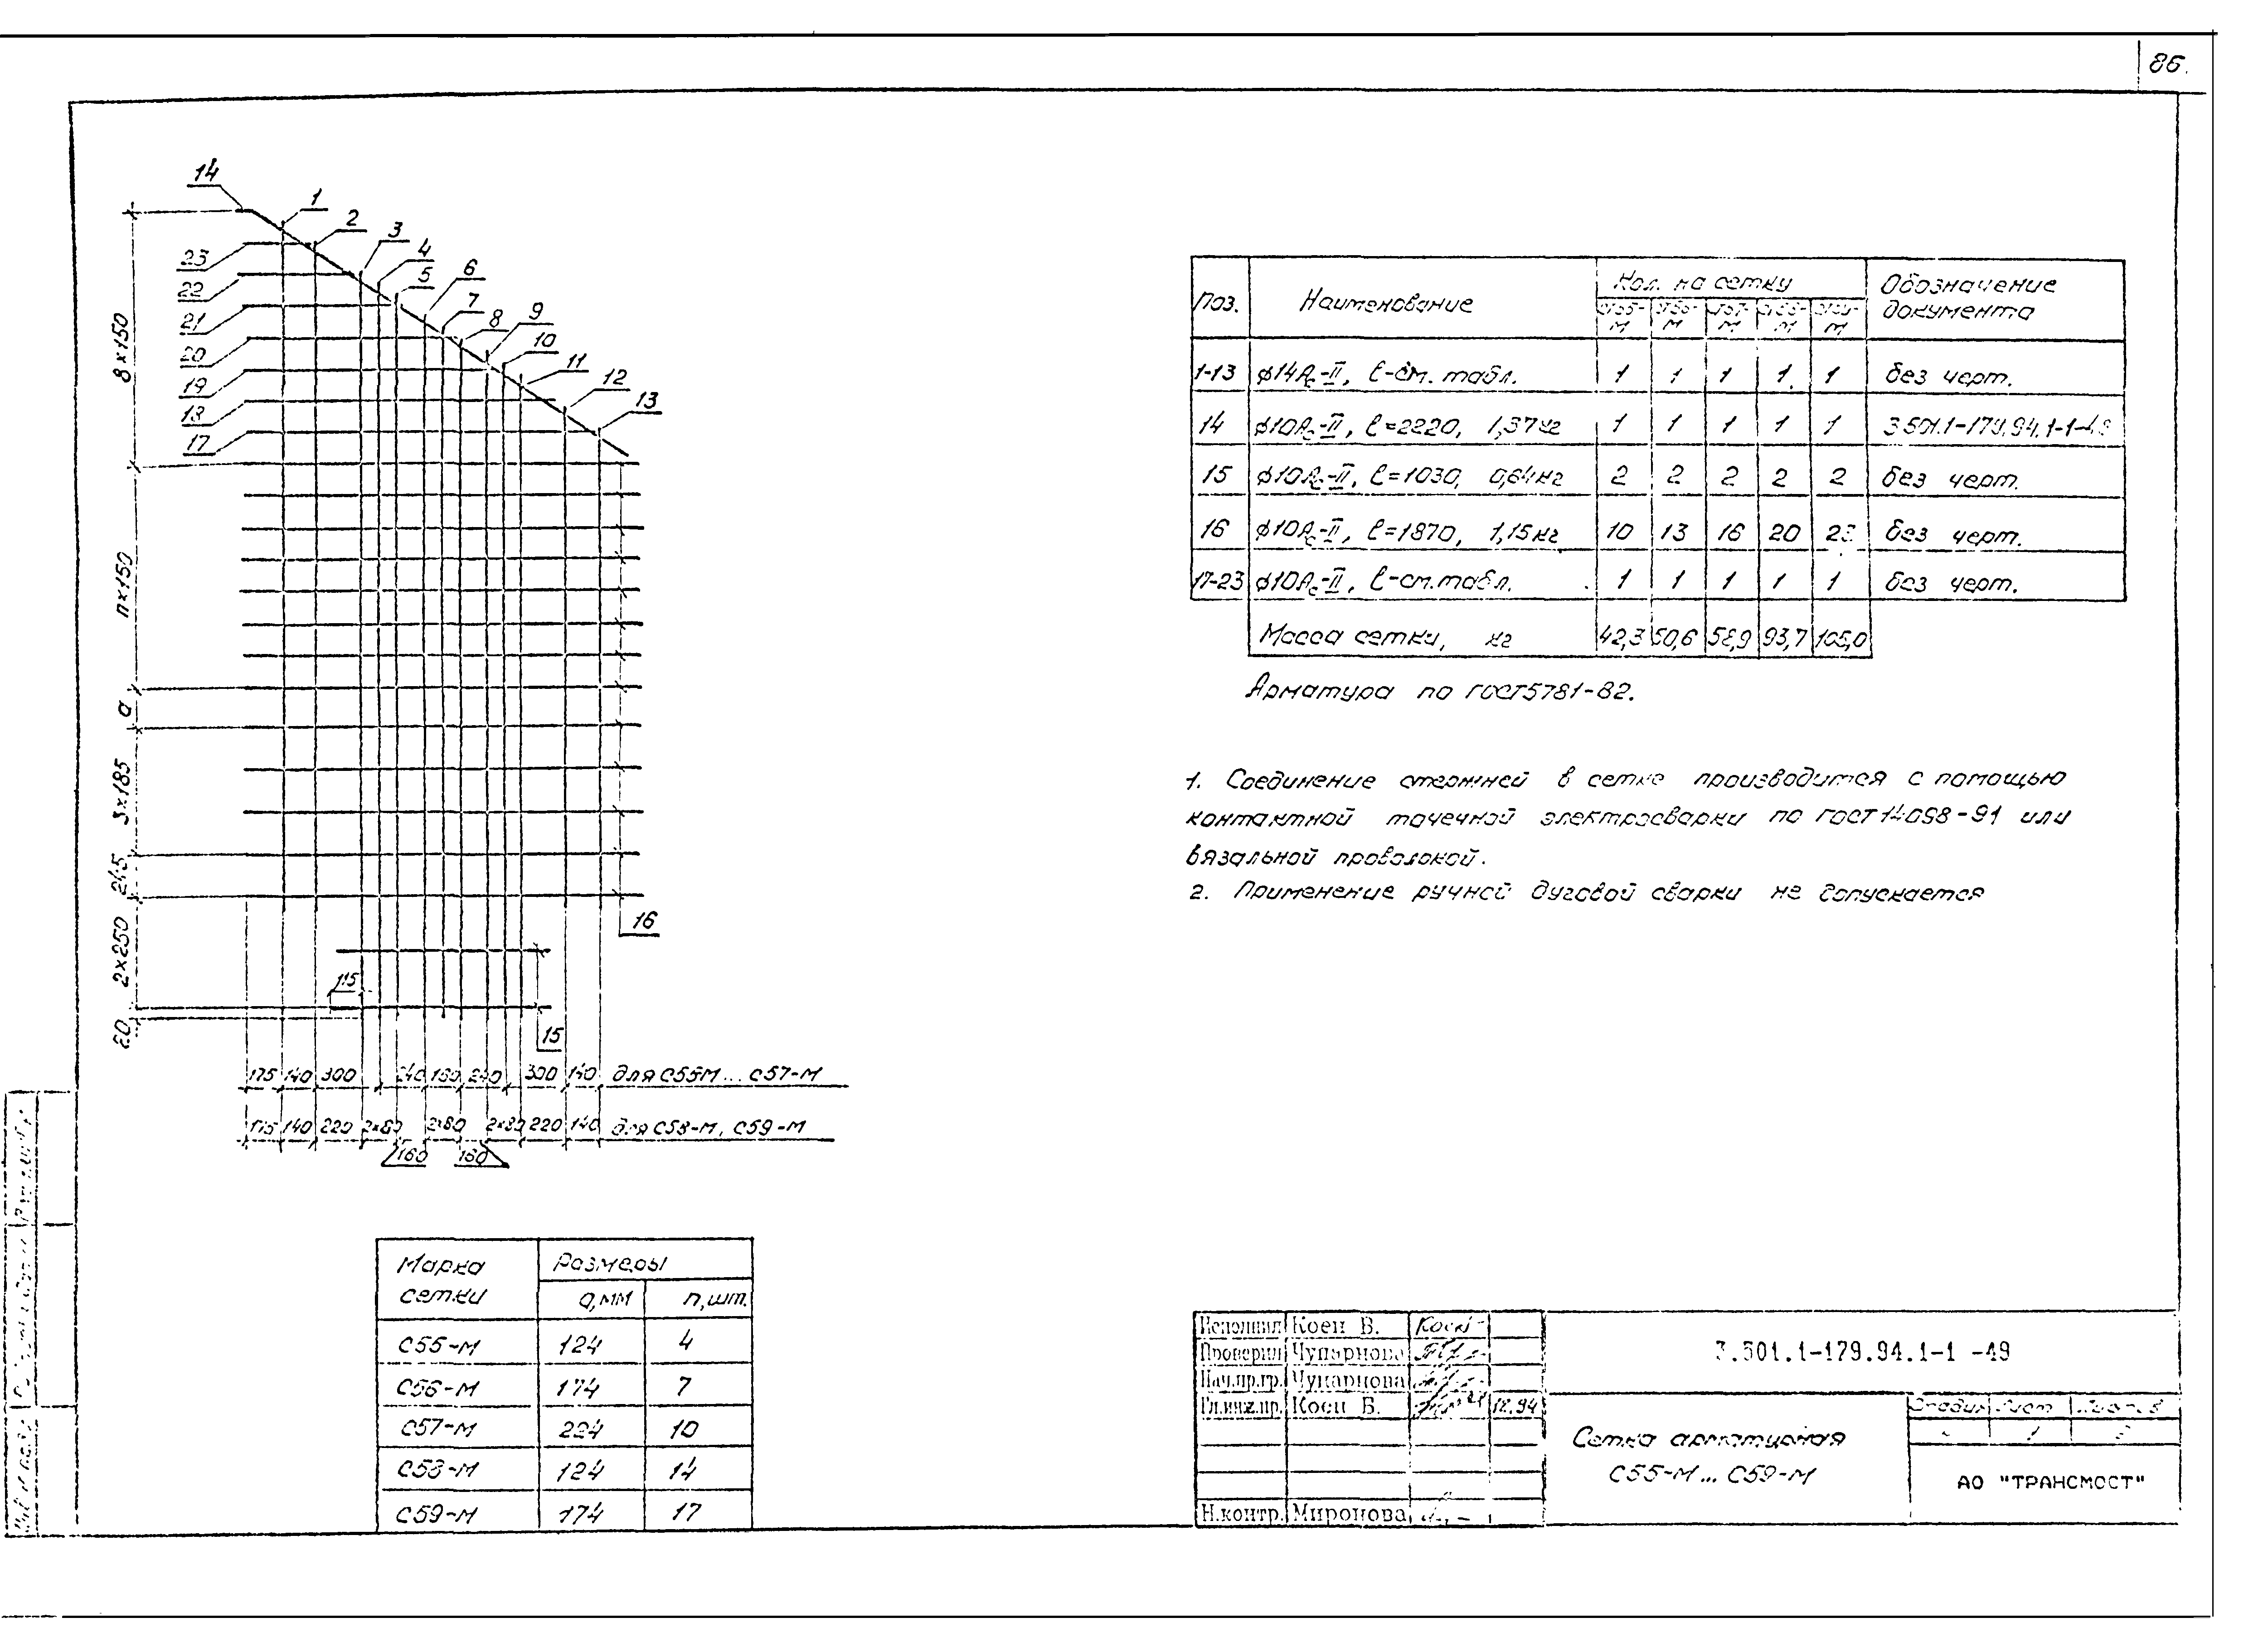 86.
14
1
2
3
4
5
6
7
8
9
10
11
12
13
23
22
21
20
19
18
17
8×150
n×150
а
3×185
245
2×250
20
16
115
15
175 140 300 240 160 240 300 140 для С55М... С57-М
175 140 220 2×80 2×80 2×80 220 140 для С58-М, С59-М
160 160
Поз. Наименование Кол. на сетку Обозначение документа
С55-М С56-М С57-М С58-М С59-М
1-13 ϕ14Ас-II, ℓ-см. табл. 1 1 1 1 1 без черт.
14 ϕ10Ас-II, ℓ=2220, 1,37кг 1 1 1 1 1 3.501.1-179.94.1-1-49
15 ϕ10Ас-II, ℓ=1030, 0,64кг 2 2 2 2 2 без черт.
16 ϕ10Ас-II, ℓ=1870, 1,15кг 10 13 16 20 23 без черт.
17-23 ϕ10Ас-II, ℓ-см. табл. 1 1 1 1 1 без черт.
Масса сетки, кг 42,3 50,6 58,9 93,7 105,0
Арматура по ГОСТ5781-82.
1. Соединение стержней в сетке производится с помощью
контактной точечной электросварки по ГОСТ 14098-91 или
вязальной проволокой.
2. Применение ручной дуговой сварки не допускается
Марка сетки Размеры
а,мм n,шт.
С55-М 124 4
С56-М 174 7
С57-М 224 10
С58-М 124 14
С59-М 174 17
Исполнил Коен В. Коен
Проверил Чупарнова
Нач.пр.гр. Чупарнова
Гл.инж.пр. Коен В. 12.94
Н.контр. Миронова
3.501.1-179.94.1-1 -49
Сетка арматурная
С55-М... С59-М
Стадия Лист Листов
1
АО "ТРАНСМОСТ"